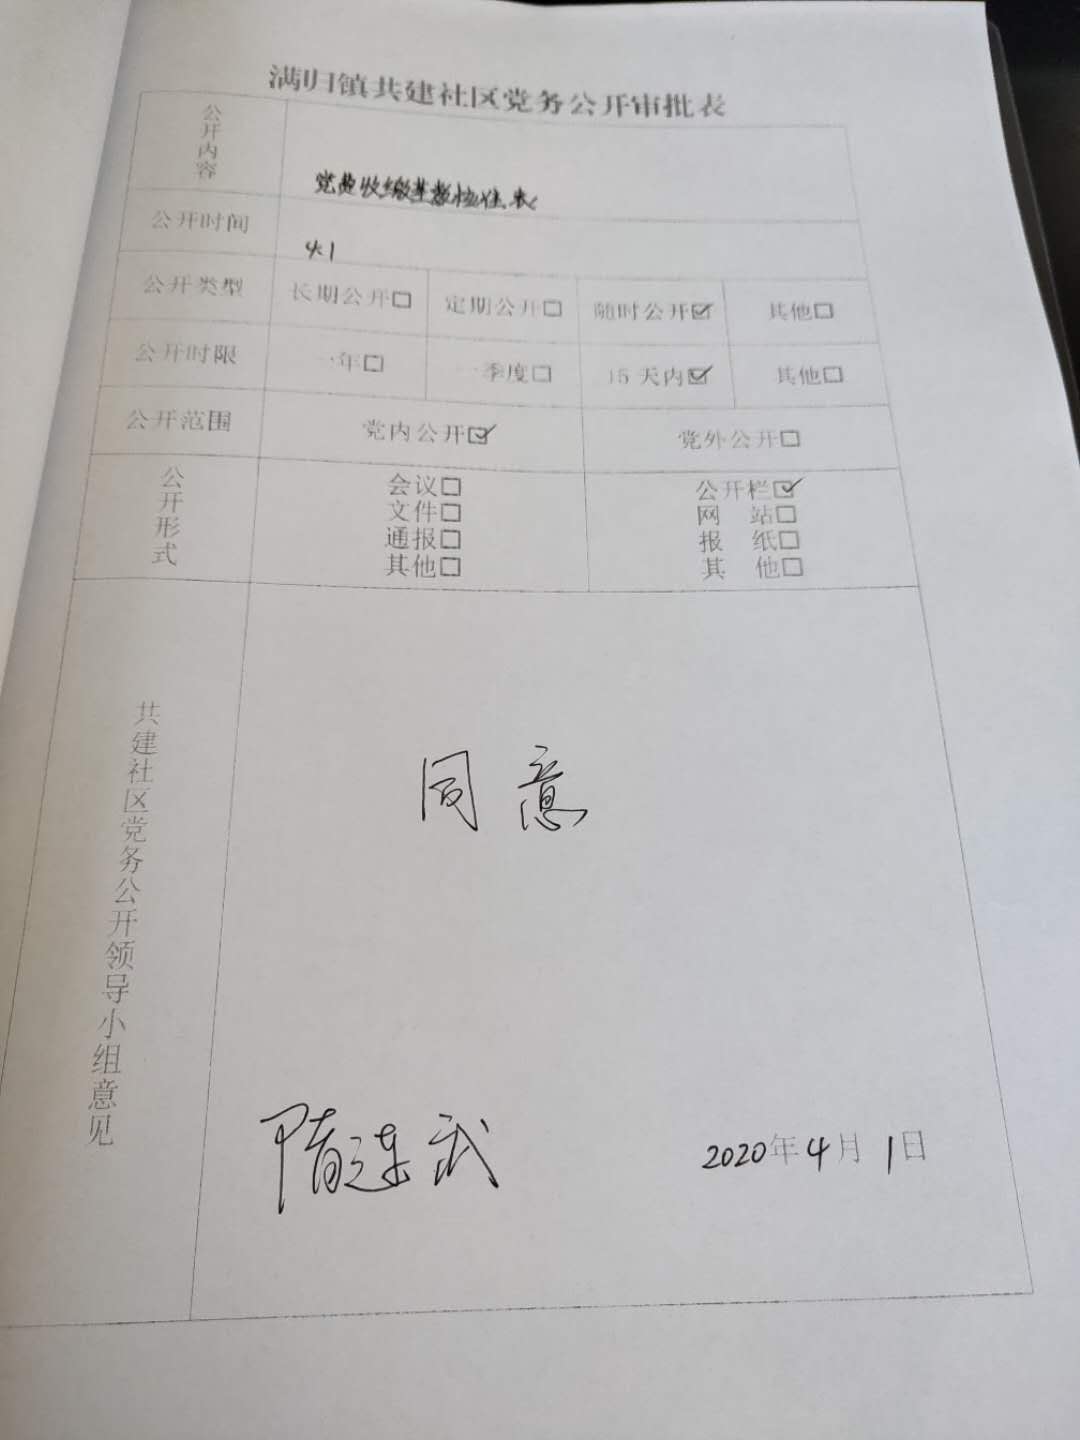 满归镇共建社区党务公开审批表
公开内容 党费收缴基数核准表
公开时间 4.1
公开类型 长期公开□ 定期公开□ 随时公开☑ 其他□
公开时限 一年□ 一季度□ 15天内☑ 其他□
公开范围 党内公开☑ 党外公开□
公开形式
会议□ 公开栏☑
文件□ 网 站□
通报□ 报 纸□
其他□ 其 他□
共建社区党务公开领导小组意见
同意
隋连武 2020年4月1日